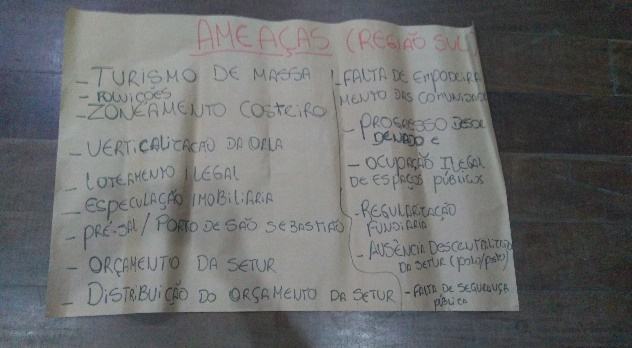 AMEAÇAS (REGIÃO SUL
- TURISMO DE MASSA
- POLUIÇÕES
- ZONEAMENTO COSTEIRO
- VERTICALIZAÇÃO DA ORLA
- LOTEAMENTO ILEGAL
- ESPECULAÇÃO IMOBILIÁRIA
- PRÉ-SAL / PORTO DE SÃO SEBASTIÃO
- ORÇAMENTO DA SETUR
- DISTRIBUIÇÃO DO ORÇAMENTO DA SETUR
- FALTA DE EMPODERA
MENTO DAS COMUNIDADE
- PROGRESSO DESOR
DENADO E
- OCUPAÇÃO ILEGAL
DE ESPAÇOS PÚBLICOS
- REGULARIZAÇÃO
FUNDIÁRIA
- AUSÊNCIA
DA SETUR
- FALTA DE SEGURANÇA
PÚBLICA